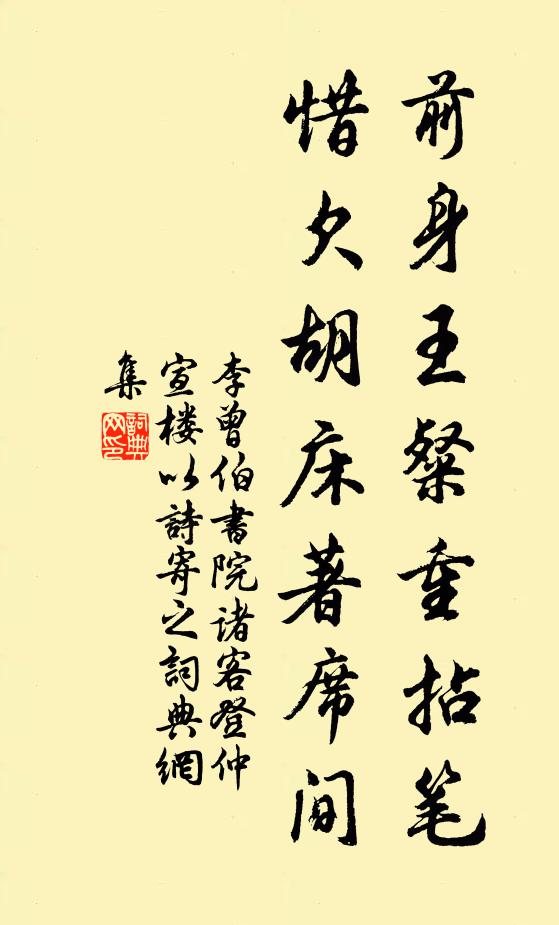 前身王粲重拈笔
惜欠胡床著席间
李曾伯書院诸客登仲
宣楼以詩寄之詞典網
集
詞典网印